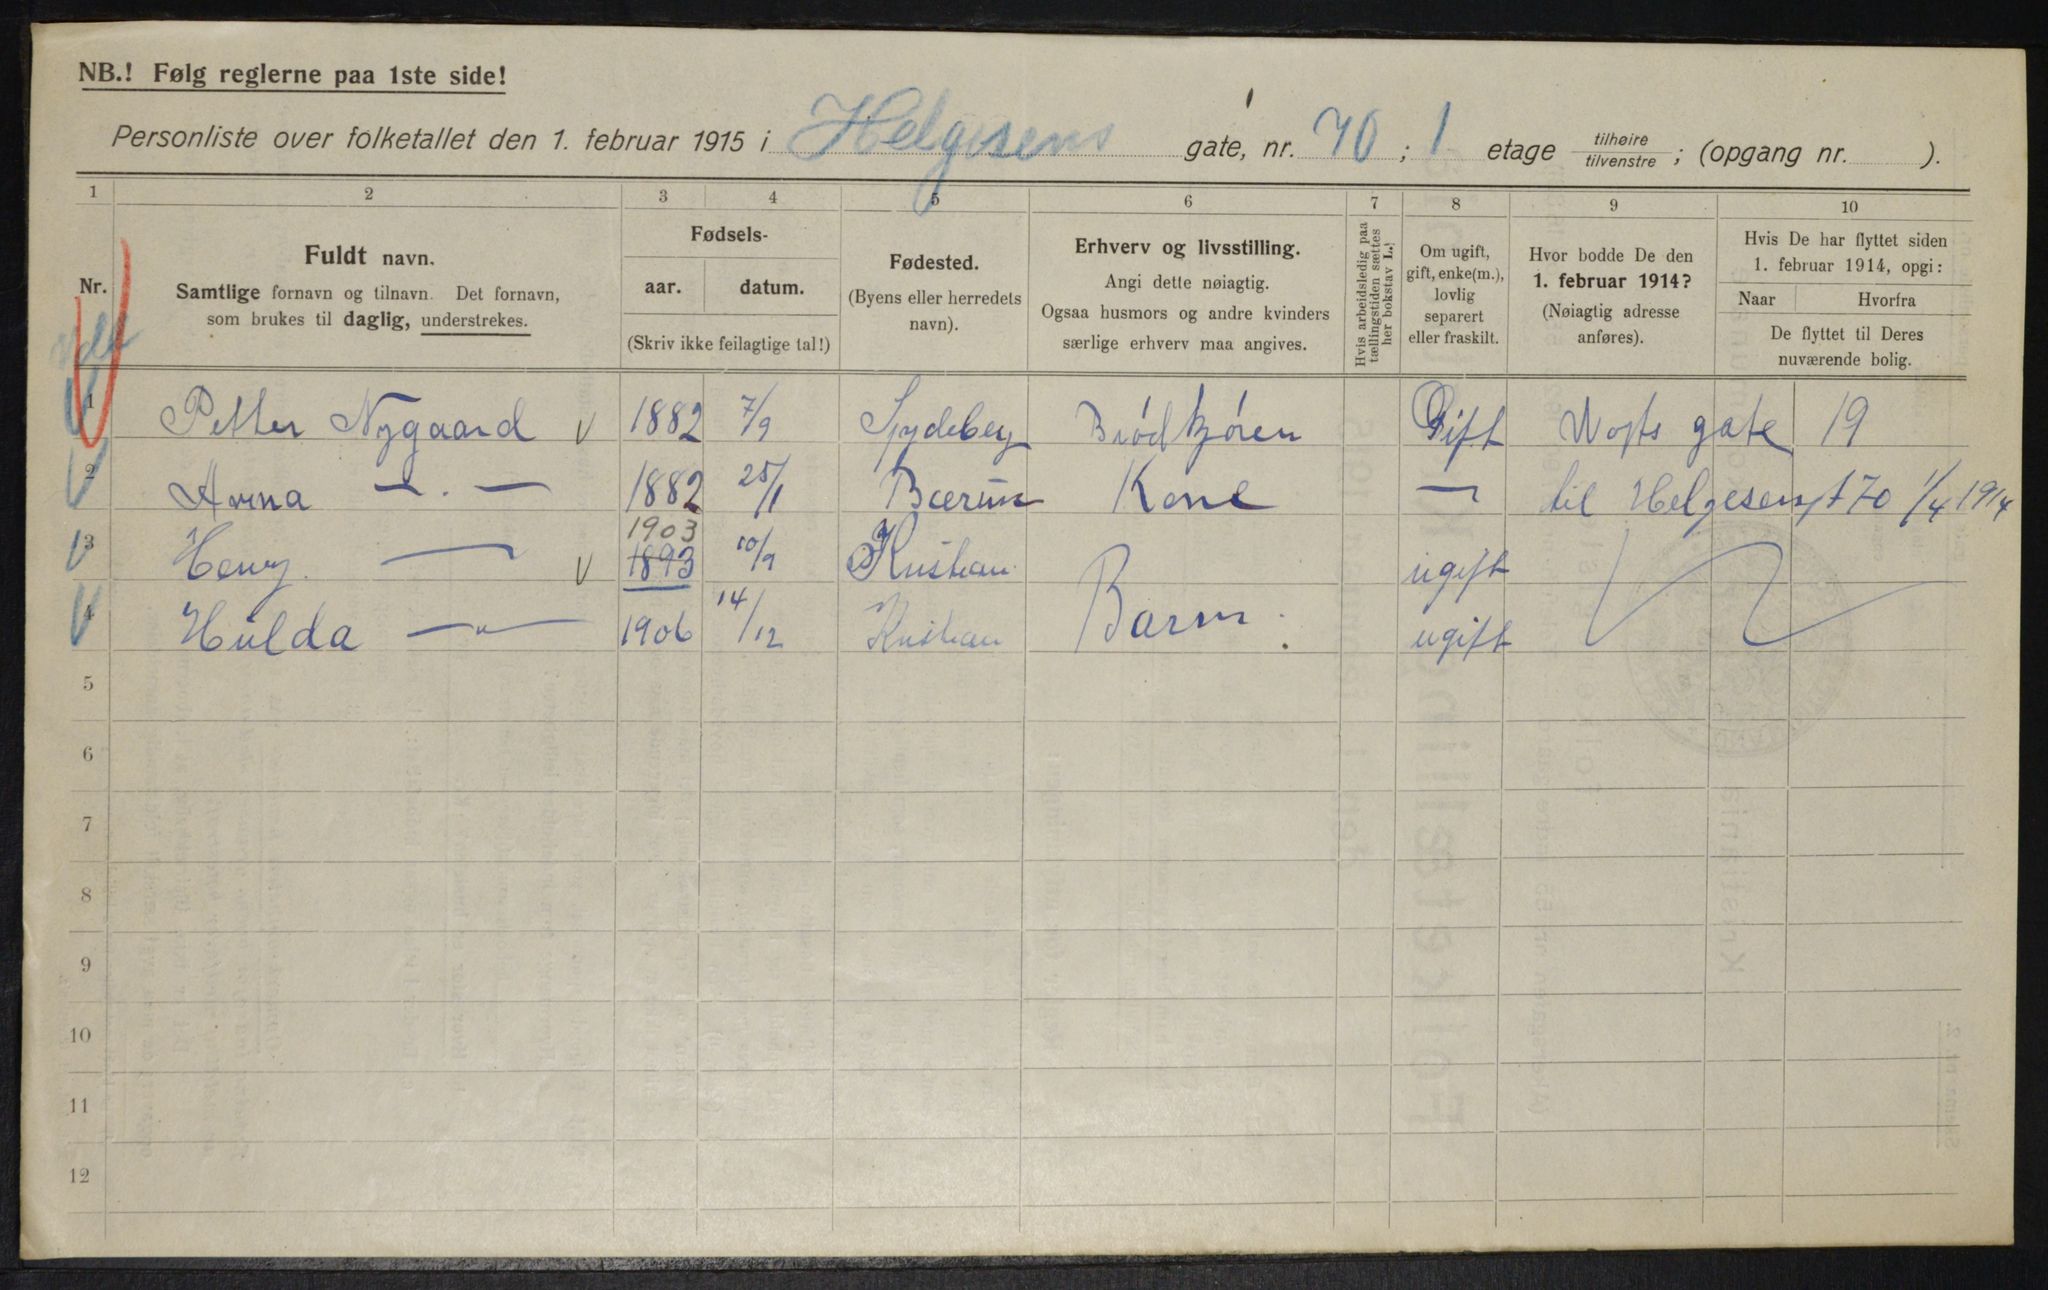 NB.! Følg reglerne paa 1ste side!
Personliste over folketallet den 1. februar 1915 i Helgesens gate, nr. 70 ; 1 etage tilhøire tilvenstre ; (opgang nr. ).
1 2 3 4 5 6 7 8 9 10
Nr.
Fuldt navn.
Samtlige fornavn og tilnavn. Det fornavn,
som brukes til daglig, understrekes.
Fødsels-
aar. datum.
(Skriv ikke feilagtige tal!)
Fødested.
(Byens eller herredets
navn).
Erhverv og livsstilling.
Angi dette nøiagtig.
Ogsaa husmors og andre kvinders
særlige erhverv maa angives.
Hvis arbeidsledig paa
tællingstiden sættes
her bokstav L.!
Om ugift,
gift, enke(m.),
lovlig
separert
eller fraskilt.
Hvor bodde De den
1. februar 1914?
(Nøiagtig adresse
anføres).
Hvis De har flyttet siden
1. februar 1914, opgi:
Naar Hvorfra
De flyttet til Deres
nuværende bolig.
1 Petter Nygaard v 1882 7/9 Spydeberg Brødkjøren Gift Vogts gate 19
2 Anna —.— 1882 25/1 Bærum Kone — til Helgesensgt 70 1/4 1914
1903
3 Henry — v 1893 10/9 Kristian ugift
4 Hulda —"— 1906 14/12 Kristian Barn. ugift
5
6
7
8
9
10
11
12